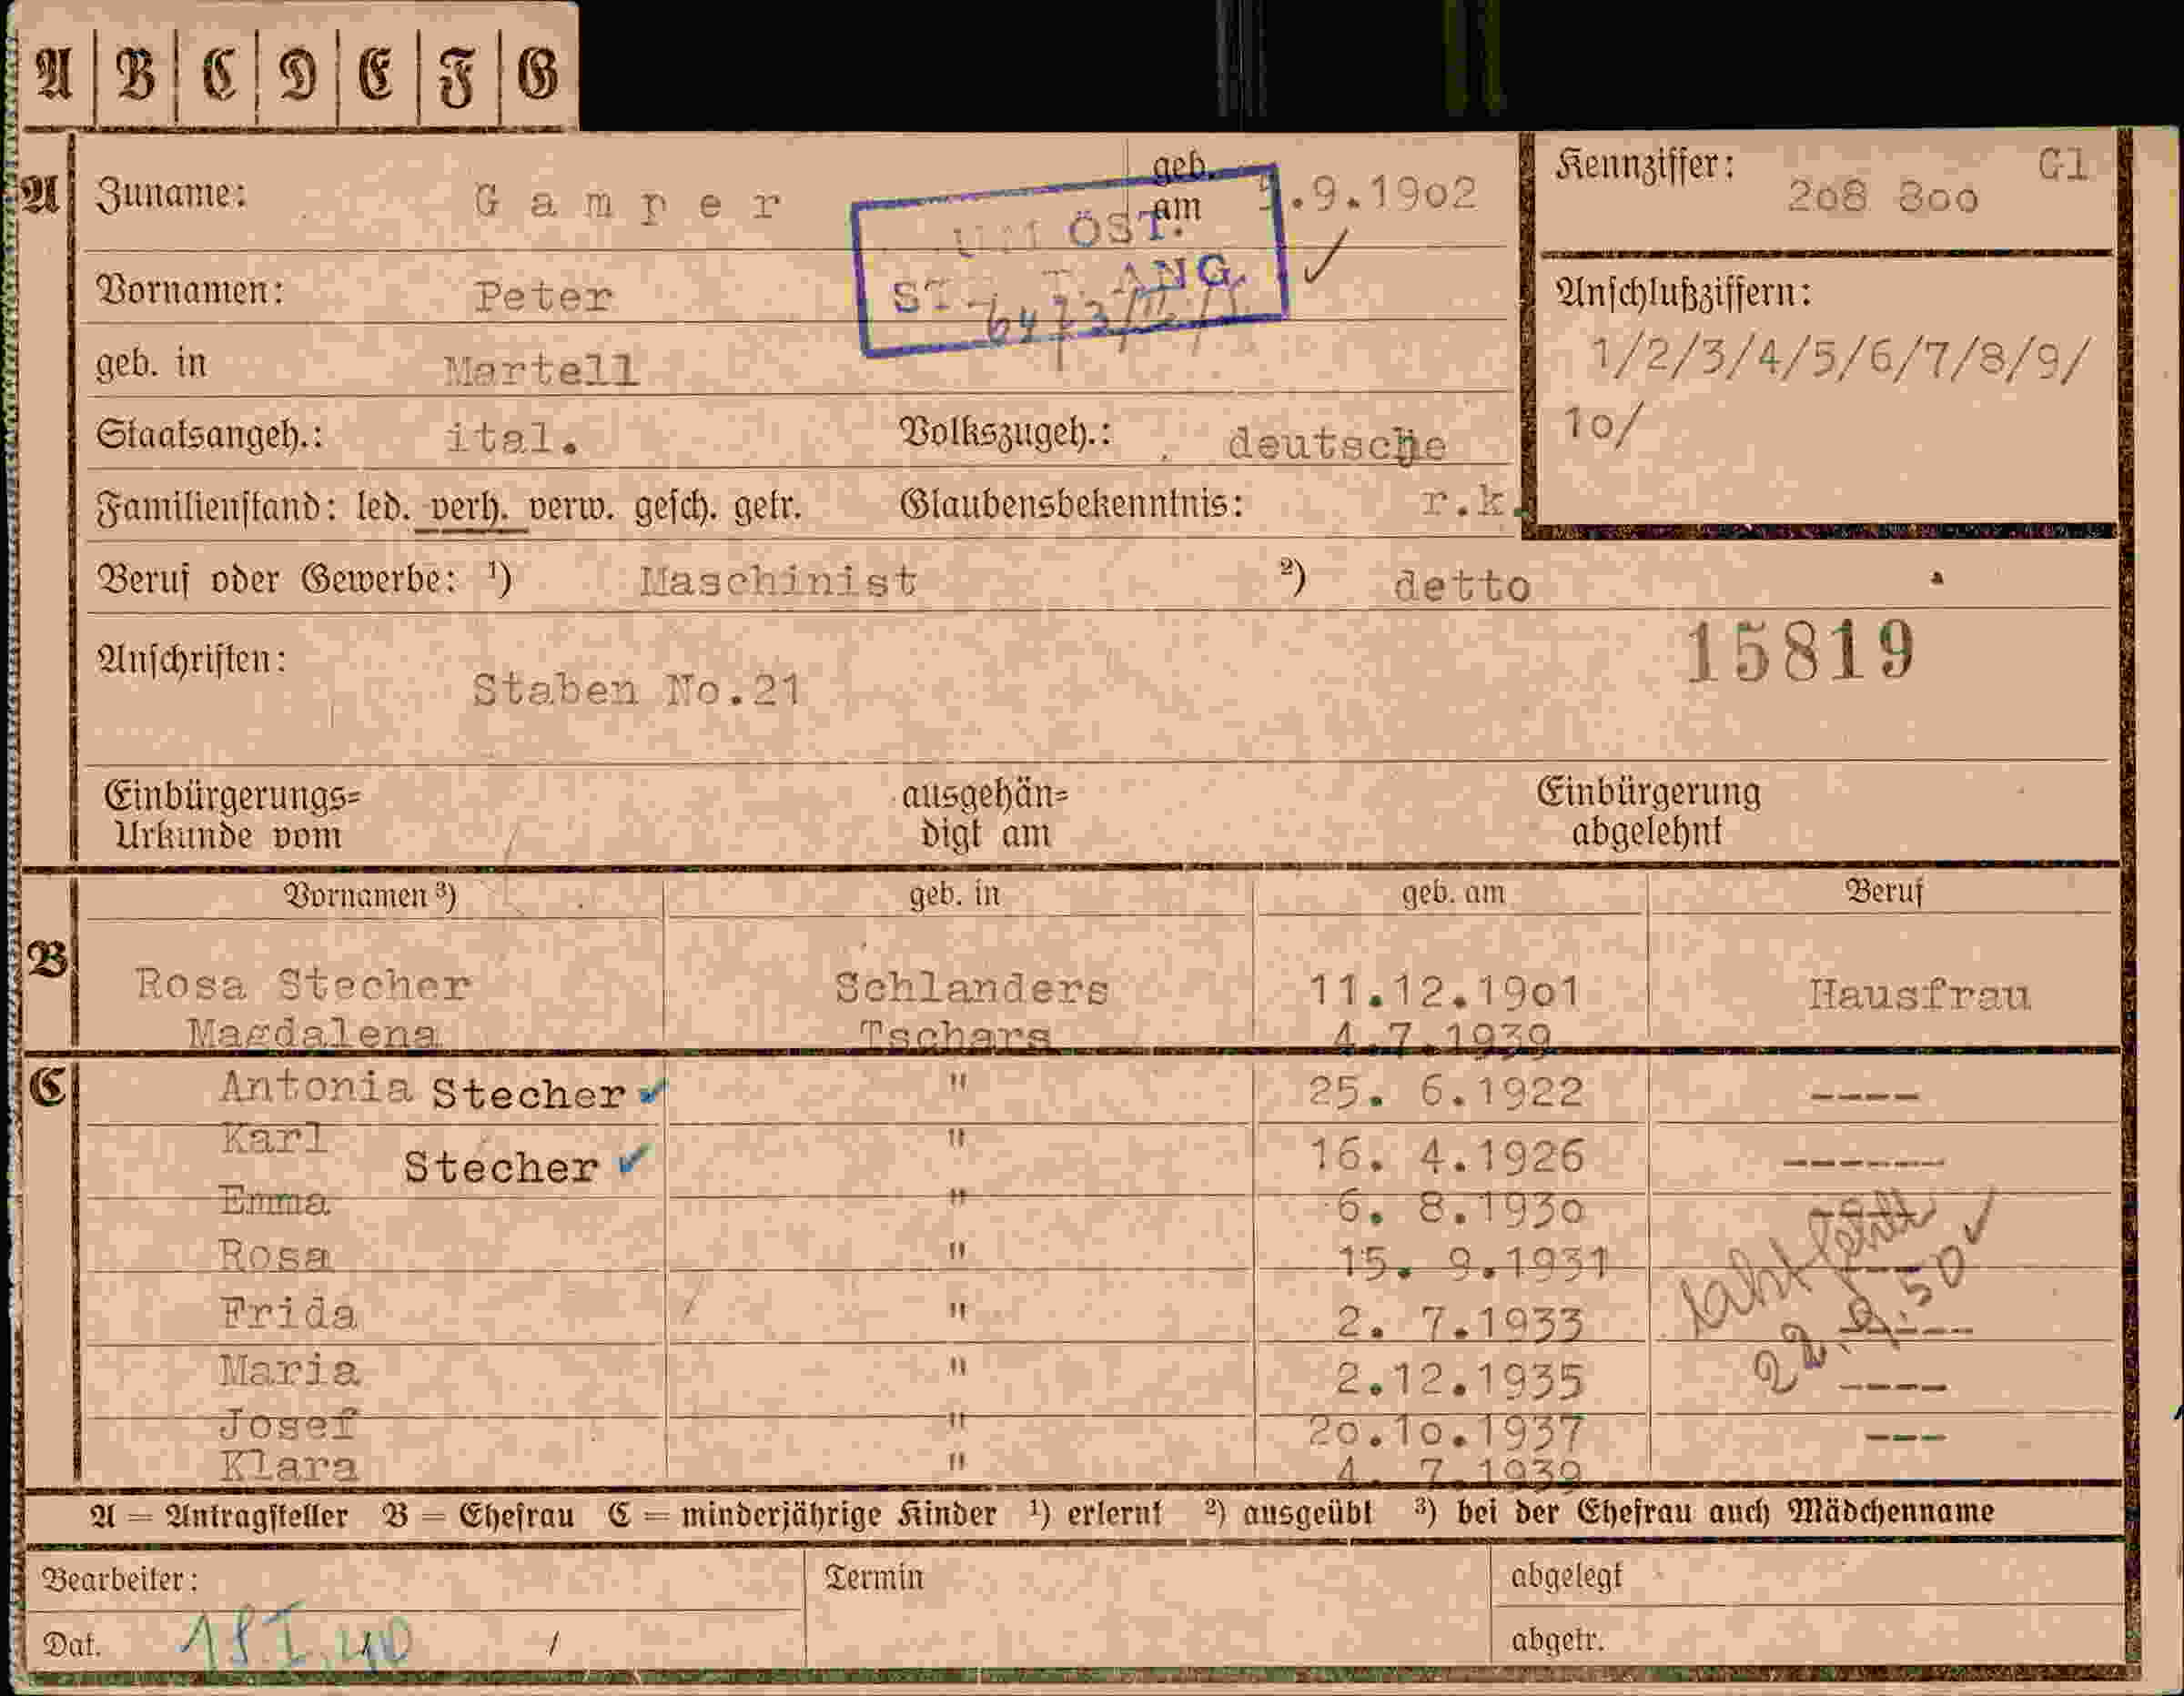 A B C D E F G
A Zuname: Gamper geb. am .9.1902
Kennziffer: 208 800 Gl
ÖST.
ANG.
Vornamen: Peter
Anschlußziffern:
1/2/3/4/5/6/7/8/9/
10/
geb. in Martell
Staatsangeh.: ital. Volkszugeh.: deutsche
Familienstand: led. verh. verw. gesch. getr. Glaubensbekenntnis: r.k.
Beruf oder Gewerbe: ¹) Maschinist ²) detto
15819
Anschriften: Staben No.21
Einbürgerungs= Urkunde vom ausgehän= digt am Einbürgerung abgelehnt
Vornamen ³) geb. in geb. am Beruf
B Rosa Stecher Schlanders 11.12.1901 Hausfrau
Magdalena Tschars 4.7.1939
C Antonia Stecher " 25. 6.1922 ----
Karl Stecher " 16. 4.1926 ------
Emma " 6. 8.1930 ----
Rosa " 15. 9.1931
Frida " 2. 7.1933 -----
Maria " 2.12.1935 ----
Josef " 20.10.1937 ---
Klara " 4. 7.1939
fehlt
22.9.50
A = Antragsteller B = Ehefrau C = minderjährige Kinder ¹) erlernt ²) ausgeübt ³) bei der Ehefrau auch Mädchenname
Bearbeiter: Termin abgelegt
Dat. 18.I.40 / abgetr.